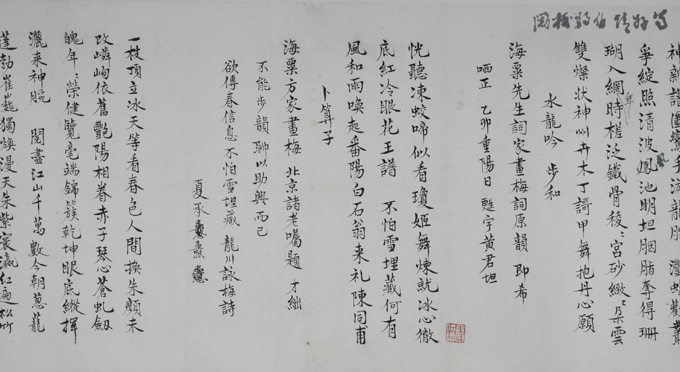 神新譜團臠手法龍朋 灃虬歡叢
爭綻照清波鳳池明坦胭脂奪得珊
瑚入網時槎泛鐵骨稜〻宮砂緻〻朵雲
雙燦狀神州卉木丁謌甲舞抱丹心願
水龍吟 步和
海粟先生詞家畫梅詞原韻 即希
哂正 乙卯重陽日 甦宇黄君坦
恍聽凍蛟啼似看瓊姬舞煉就冰心徹
底紅冷眼花王譜 不怕雪埋藏何有
風和雨喚起番陽白石翁来礼陳同甫
卜算子
海粟方家畫梅 北京諸老囑題 才絀
不能步韻聊以助興而已
欲傳春信息不怕雪埋藏 龍川詠梅詩
夏承燾
一枝頂立冰天等看春色人間換朱顏未
改嶙峋依舊艷陽相眷赤子琴心蒼虬劍
魄年〻榮健覽毫端錦簇乾坤眼底縱揮
灑来神腕 閱盡江山千萬數今朝蔥蘢
蓬勃崔巍獨煥漫天朱紫